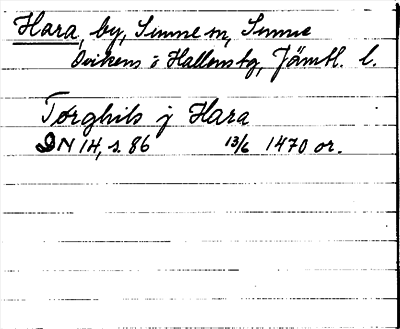 Hara, by, Sunne sn, Sunne
Ovikens o Hallens tg, Jämtl. l.
Torghils j Hara
DN 14, s. 86 13/6 1470 or.